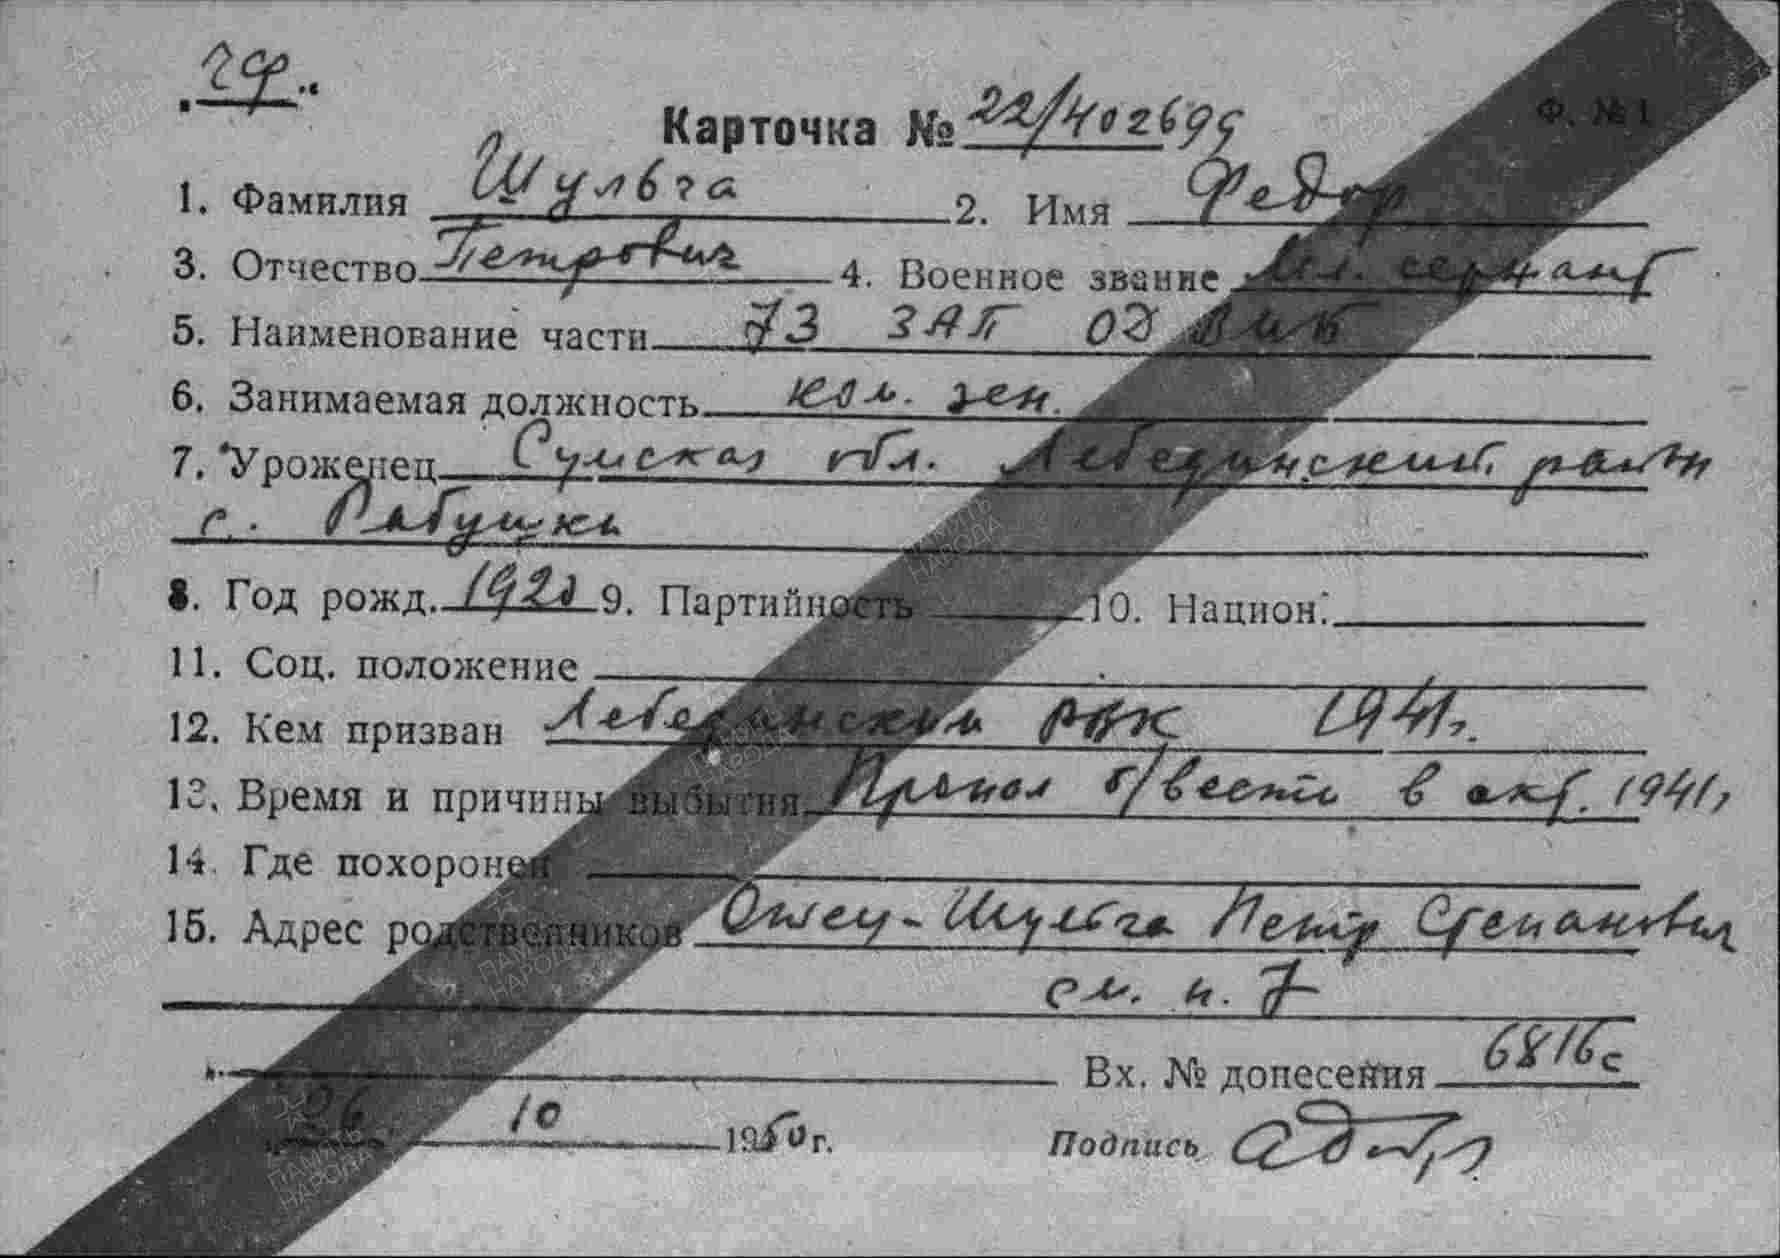 гф.
Карточка № 22/402699
Ф. № 1
1. Фамилия Шульга 2. Имя Федор
3. Отчество Петрович 4. Военное звание Мл. сержант
5. Наименование части 73 ЗАП ОД
6. Занимаемая должность ком. зен.
7. Уроженец Сумская обл. Лебединский район
с. Рабушки
8. Год рожд. 1920 9. Партийность 10. Национ.
11. Соц. положение
12. Кем призван Лебединским РВК 1941г.
13. Время и причины выбытия Пропал б/вести в окт. 1941г
14. Где похоронен
15. Адрес родственников Отец - Шульга Петр Степанович
см. п. 7
Вх. № донесения 6816с
26 10 1950 г.
Подпись